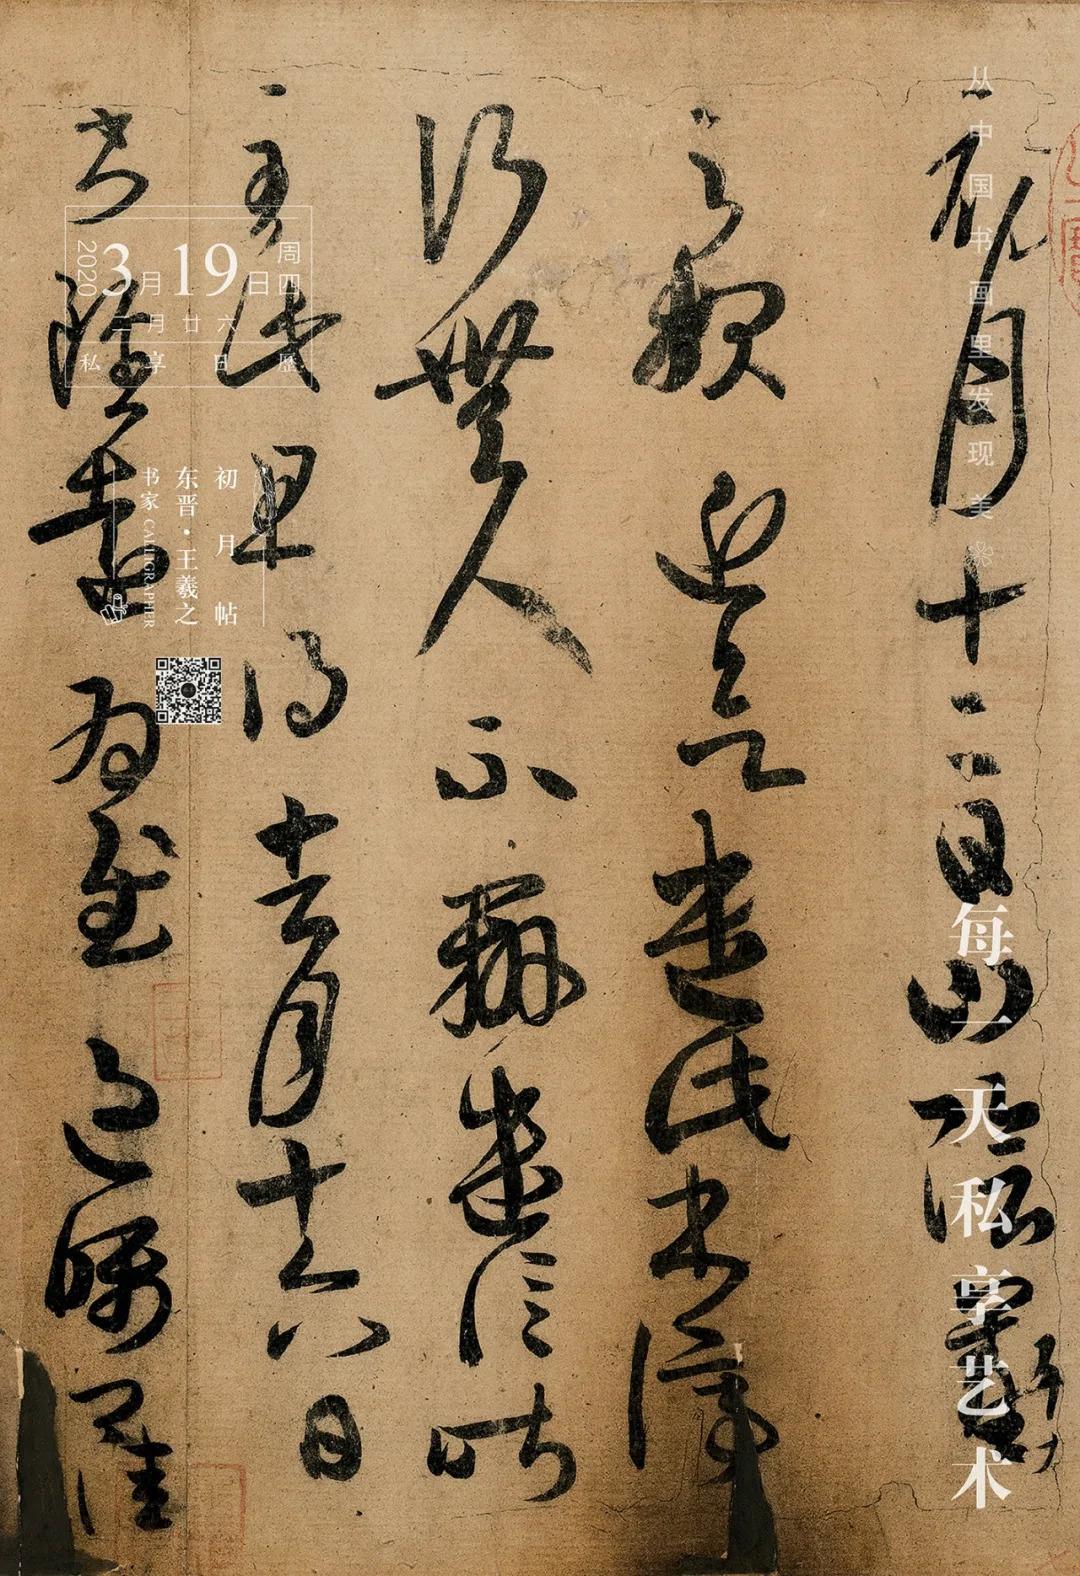 初月十二日山陰羲
之報近欲遣此書停
行無人不辦遣信昨
至此且得去月十六日
書雖遠為慰過囑卿
从中国书画里发现美
每一天私享艺术
2020
3月19日
周四
二月廿六
私享日歷
初月帖
东晋·王羲之
书家 CALLIGRAPHER